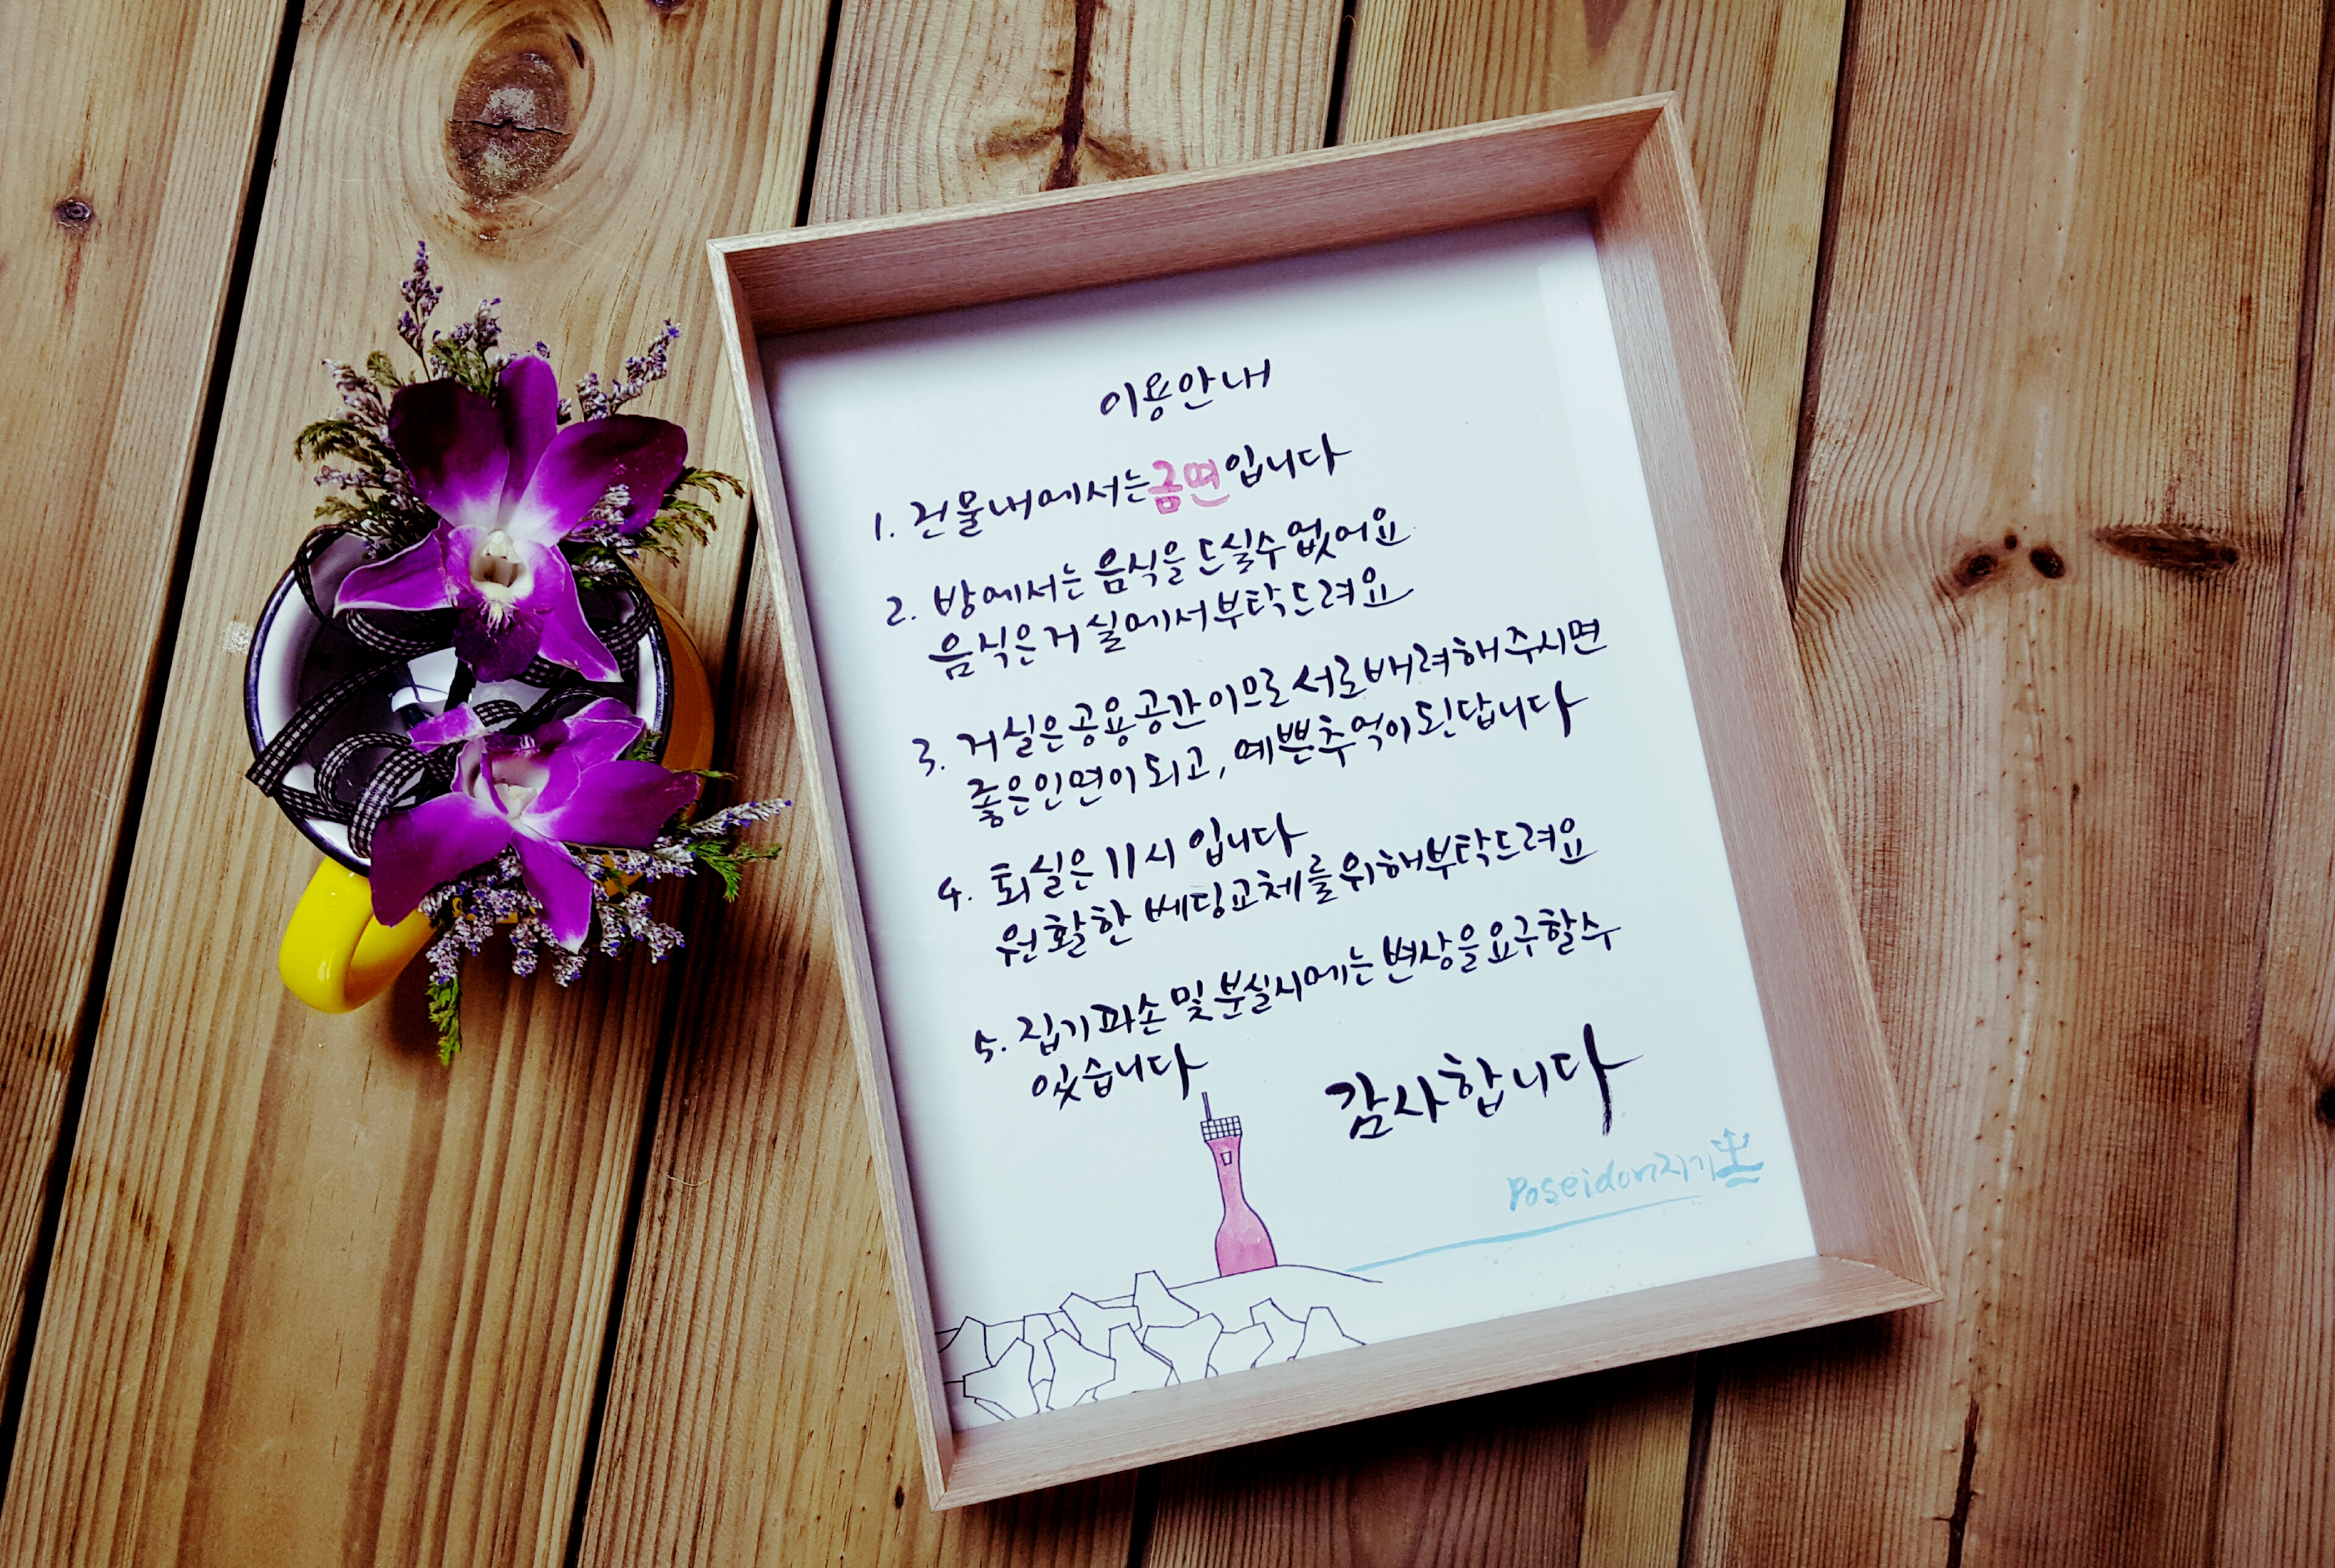 이용안내
1. 건물내에서는 금연입니다
2. 방에서는 음식을 드실수 없어요
음식은 거실에서 부탁드려요
3. 거실은 공용공간이므로 서로 배려해 주시면
좋은 인연이 되고, 예쁜 추억이 된답니다
4. 퇴실은 11시 입니다
원활한 베딩교체를 위해 부탁드려요
5. 집기파손 및 분실시에는 변상을 요구할 수
있습니다
감사합니다
Poseidon지기